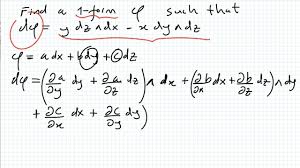 Find a 1-form φ such that
dφ = y dz ∧ dx - x dy ∧ dz
φ = a dx + b dy + c dz
dφ = (∂a/∂y dy + ∂a/∂z dz) ∧ dx + (∂b/∂x dx + ∂b/∂z dz) ∧ dy
+ (∂c/∂x dx + ∂c/∂y dy)